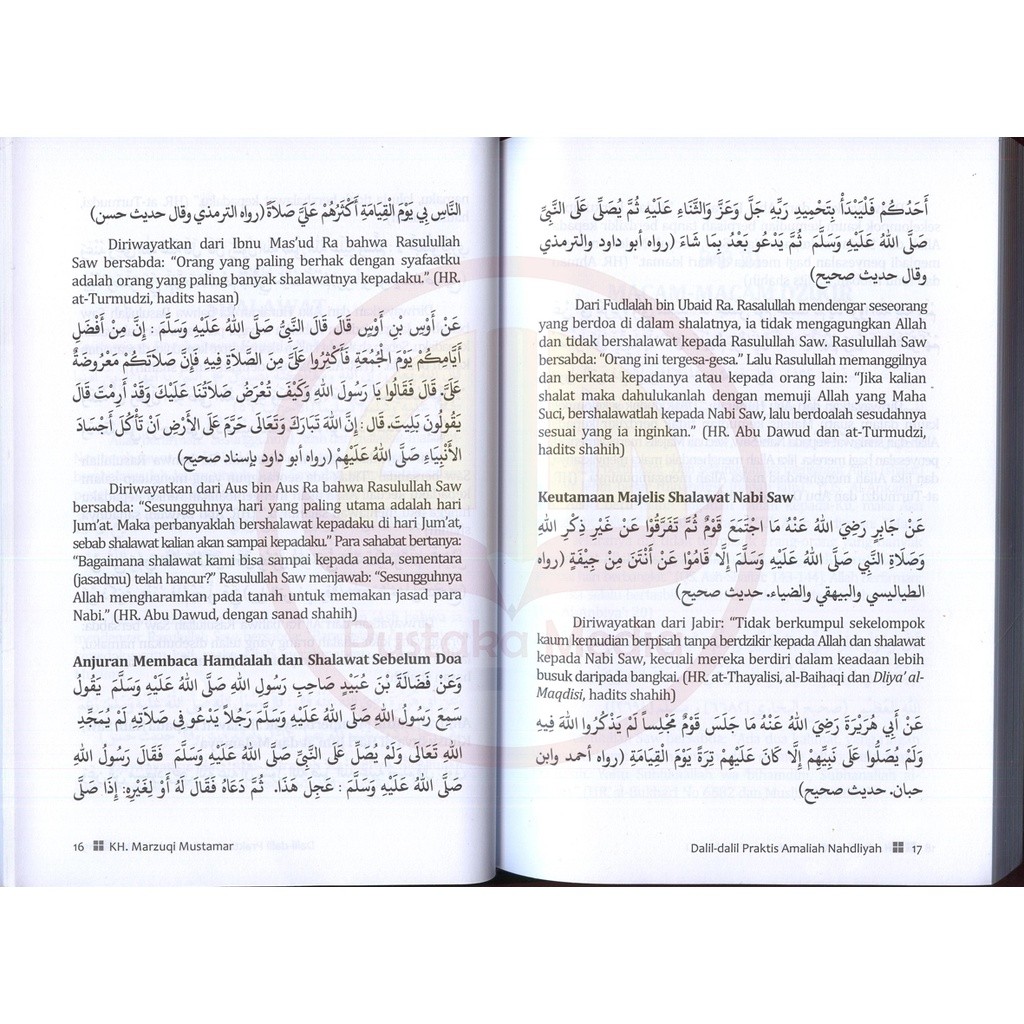 النَّاسِ بِي يَوْمَ الْقِيَامَةِ أَكْثَرُهُمْ عَلَيَّ صَلاَةً (رواه الترمذي وقال حديث حسن)
Diriwayatkan dari Ibnu Mas'ud Ra bahwa Rasulullah
Saw bersabda: "Orang yang paling berhak dengan syafaatku
adalah orang yang paling banyak shalawatnya kepadaku." (HR.
at-Turmudzi, hadits hasan)
عَنْ أَوْسِ بْنِ أَوْسٍ قَالَ قَالَ النَّبِيُّ صَلَّى اللهُ عَلَيْهِ وَسَلَّمَ : إِنَّ مِنْ أَفْضَلِ
أَيَّامِكُمْ يَوْمَ الْجُمُعَةِ فَأَكْثِرُوا عَلَيَّ مِنَ الصَّلاَةِ فِيهِ فَإِنَّ صَلاَتَكُمْ مَعْرُوضَةٌ
عَلَيَّ. قَالَ فَقَالُوا يَا رَسُولَ اللهِ وَكَيْفَ تُعْرَضُ صَلاَتُنَا عَلَيْكَ وَقَدْ أَرِمْتَ قَالَ
يَقُولُونَ بَلِيتَ. قَالَ: إِنَّ اللهَ تَبَارَكَ وَتَعَالَى حَرَّمَ عَلَى الأَرْضِ اَنْ تَأْكُلَ أَجْسَادَ
الأَنْبِيَاءِ صَلَّى اللهُ عَلَيْهِمْ (رواه أبو داود بإسناد صحيح)
Diriwayatkan dari Aus bin Aus Ra bahwa Rasulullah Saw
bersabda: "Sesungguhnya hari yang paling utama adalah hari
Jum'at. Maka perbanyaklah bershalawat kepadaku di hari Jum'at,
sebab shalawat kalian akan sampai kepadaku." Para sahabat bertanya:
"Bagaimana shalawat kami bisa sampai kepada anda, sementara
(jasadmu) telah hancur?" Rasulullah Saw menjawab: "Sesungguhnya
Allah mengharamkan pada tanah untuk memakan jasad para
Nabi." (HR. Abu Dawud, dengan sanad shahih)
Anjuran Membaca Hamdalah dan Shalawat Sebelum Doa
وَعَنْ فَضَالَةَ بْنَ عُبَيْدٍ صَاحِبِ رَسُولِ اللهِ صَلَّى اللهُ عَلَيْهِ وَسَلَّمَ يَقُولُ
سَمِعَ رَسُولُ اللهِ صَلَّى اللهُ عَلَيْهِ وَسَلَّمَ رَجُلاً يَدْعُو فِي صَلاَتِهِ لَمْ يُمَجِّدِ
اللهِ تَعَالَى وَلَمْ يُصَلِّ عَلَى النَّبِيِّ صَلَّى اللهُ عَلَيْهِ وَسَلَّمَ فَقَالَ رَسُولُ اللهِ
صَلَّى اللهُ عَلَيْهِ وَسَلَّمَ : عَجِلَ هَذَا. ثُمَّ دَعَاهُ فَقَالَ لَهُ أَوْ لِغَيْرِهِ: إِذَا صَلَّى
16 KH. Marzuqi Mustamar
أَحَدُكُمْ فَلْيَبْدَأْ بِتَحْمِيدِ رَبِّهِ جَلَّ وَعَزَّ وَالثَّنَاءِ عَلَيْهِ ثُمَّ يُصَلِّى عَلَى النَّبِيِّ
صَلَّى اللهُ عَلَيْهِ وَسَلَّمَ ثُمَّ يَدْعُو بَعْدُ بِمَا شَاءَ (رواه أبو داود والترمذي
وقال حديث صحيح)
Dari Fudlalah bin Ubaid Ra. Rasalullah mendengar seseorang
yang berdoa di dalam shalatnya, ia tidak mengagungkan Allah
dan tidak bershalawat kepada Rasulullah Saw. Rasulullah Saw
bersabda: "Orang ini tergesa-gesa." Lalu Rasulullah memanggilnya
dan berkata kepadanya atau kepada orang lain: "Jika kalian
shalat maka dahulukanlah dengan memuji Allah yang Maha
Suci, bershalawatlah kepada Nabi Saw, lalu berdoalah sesudahnya
sesuai yang ia inginkan." (HR. Abu Dawud dan at-Turmudzi,
hadits shahih)
Keutamaan Majelis Shalawat Nabi Saw
عَنْ جَابِرٍ رَضِيَ اللهُ عَنْهُ مَا اجْتَمَعَ قَوْمٌ ثُمَّ تَفَرَّقُوْا عَنْ غَيْرِ ذِكْرِ اللهِ
وَصَلَاةِ النَّبِي صَلَّى اللهُ عَلَيْهِ وَسَلَّمَ إِلَّا قَامُوْا عَنْ أَنْتَنَ مِنْ جِيْفَةٍ (رواه
الطياليسي والبيهقي والضياء. حديث صحيح)
Diriwayatkan dari Jabir: "Tidak berkumpul sekelompok
kaum kemudian berpisah tanpa berdzikir kepada Allah dan shalawat
kepada Nabi Saw, kecuali mereka berdiri dalam keadaan lebih
busuk daripada bangkai. (HR. at-Thayalisi, al-Baihaqi dan Dliya' al-
Maqdisi, hadits shahih)
عَنْ أَبِي هُرَيْرَةَ رَضِيَ اللهُ عَنْهُ مَا جَلَسَ قَوْمٌ مَجْلِساً لَمْ يَذْكُرُوا اللهَ فِيهِ
وَلَمْ يُصَلُّوا عَلَى نَبِيِّهِمْ إِلَّا كَانَ عَلَيْهِمْ تِرَةً يَوْمَ الْقِيَامَةِ (رواه أحمد وابن
حبان. حديث صحيح)
Dalil-dalil Praktis Amaliah Nahdliyah 17
Pustaka Media